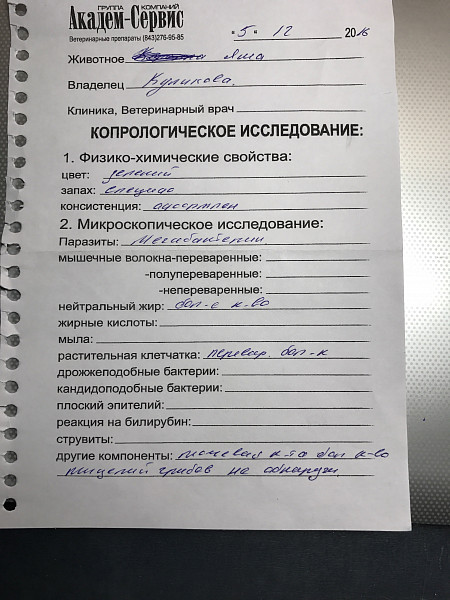 ГРУППА КОМПАНИЙ
Академ-Сервис
Ветеринарные препараты (843)276-95-85
"5" 12 2016
Животное Яша
Владелец Куликова.
Клиника, Ветеринарный врач
КОПРОЛОГИЧЕСКОЕ ИССЛЕДОВАНИЕ:
1. Физико-химические свойства:
цвет: зеленый
запах: специф
консистенция: оформлен
2. Микроскопическое исследование:
Паразиты: Мегабактерии
мышечные волокна-переваренные:
-полупереваренные:
-непереваренные:
нейтральный жир: бол-е к-во
жирные кислоты:
мыла:
растительная клетчатка: перевар. бол-к
дрожжеподобные бактерии:
кандидоподобные бактерии:
плоский эпителий:
реакция на билирубин:
струвиты:
другие компоненты: мочевая к-та бол к-во
мицелий грибов не обнаруж.